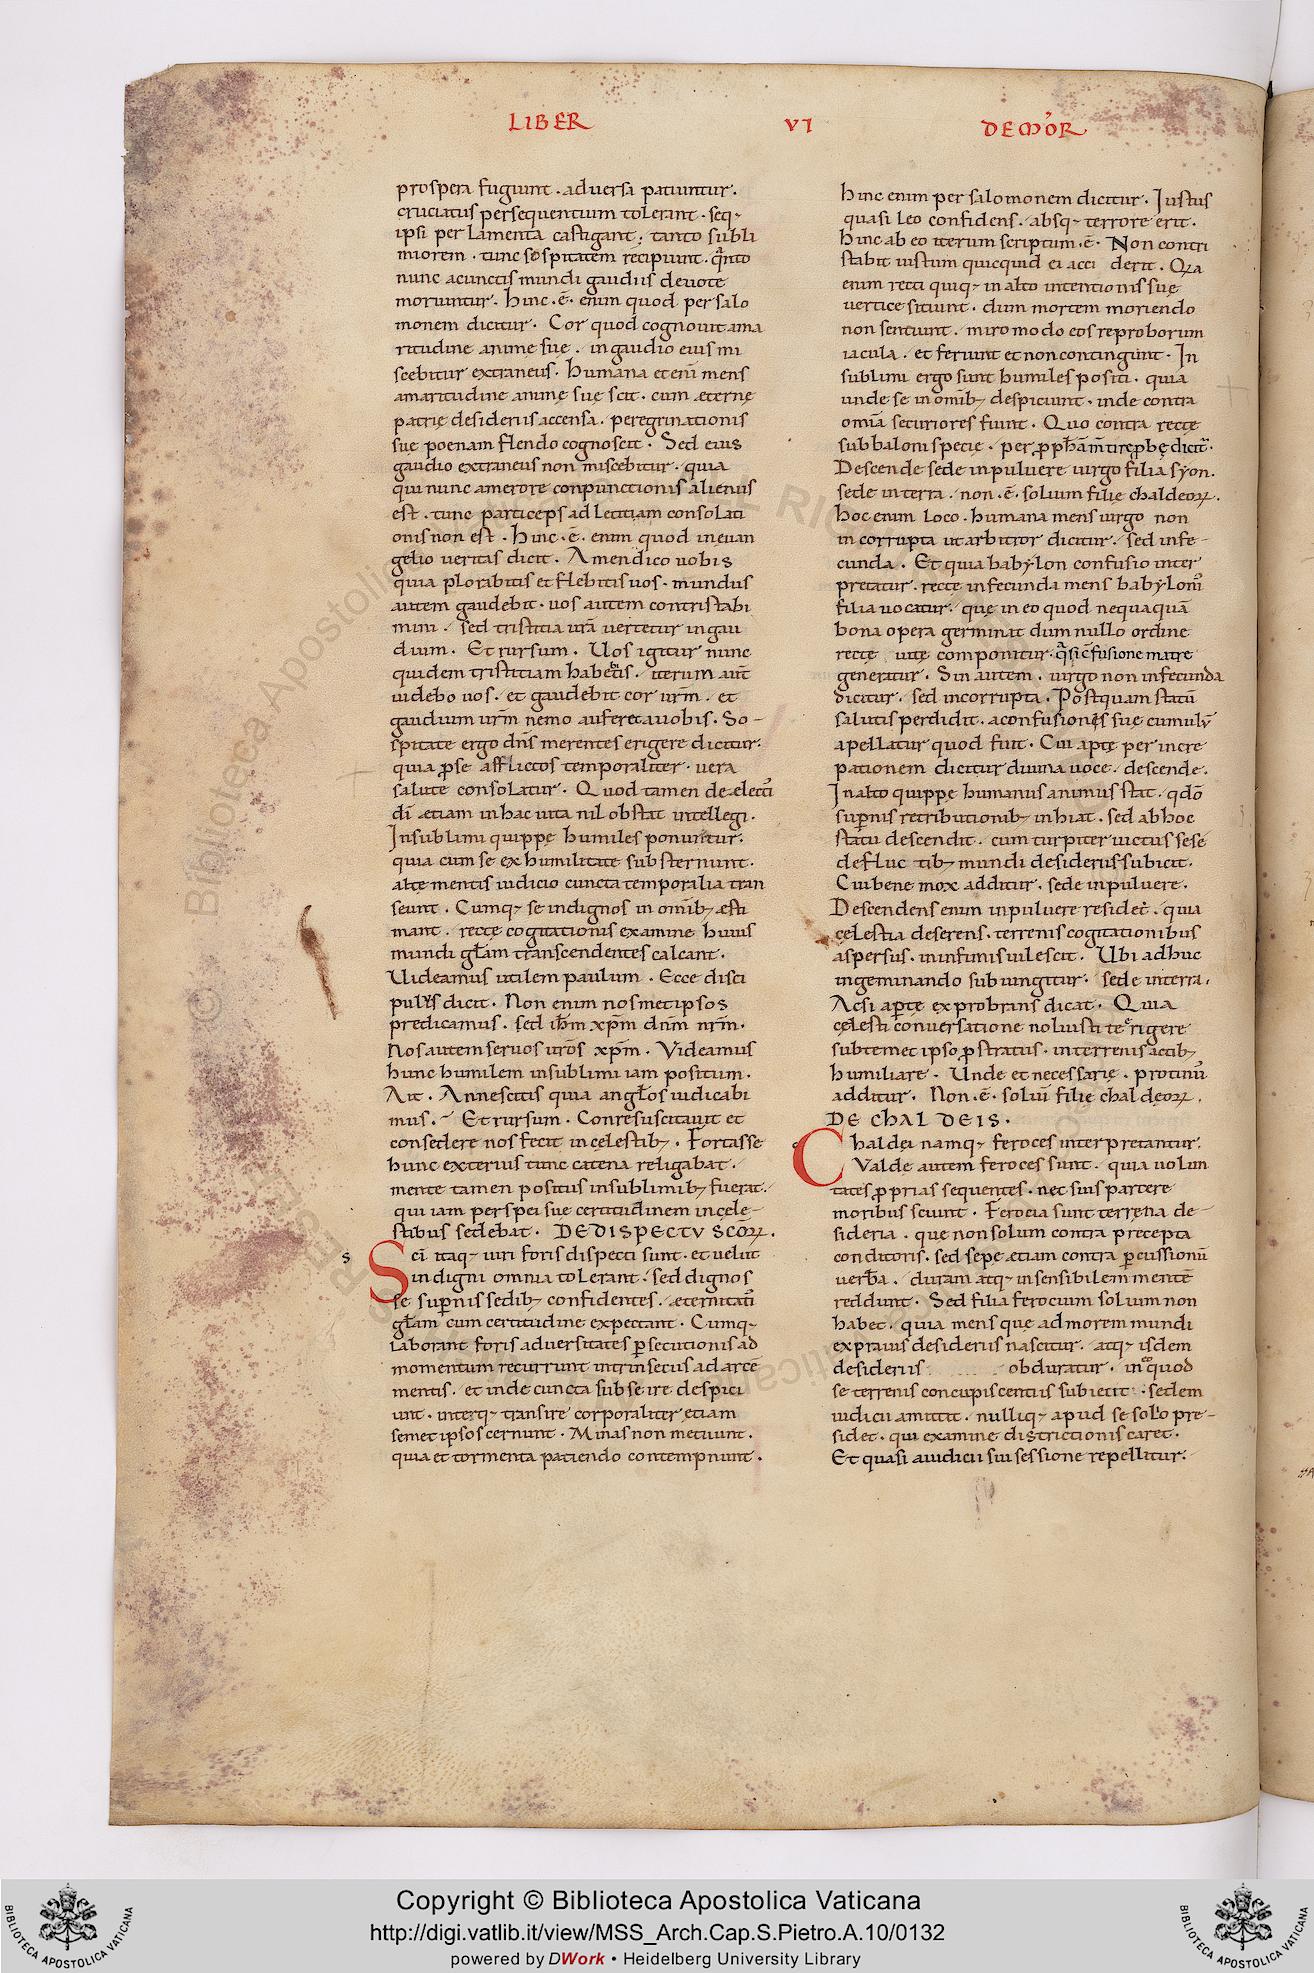 LIBER VI DE MOR̉
prospera fugiunt . adversa patiuntur .
cruciatus persequentium tolerant . seq;
ipsi per lamenta castigant ; tanto subli
miorem . tunc sospitatem recipiunt . qͣnto
nunc a cunctis mundi gaudiis devote
moriuntur . hinc . ē . enim quod per salo
monem dicitur . Cor quod cognovit ama
ritudine animę suę . in gaudio eius mi
scebitur extraneus . humana etenī mens
amaritudine animę suę scit . cum æternę
patrię desideriis accensa . peregrinationis
suę poenam flendo cognoscit . Sed eius
gaudio extraneus non miscebitur . quia
qui nunc a merore conpunctionis alienus
est . tunc particeps ad letitiam consolati
onis non est . hinc . ē . enim quod in evan
gelio veritas dicit . Amen dico vobis
quia plorabitis et flebitis vos . mundus
autem gaudebit . vos autem contristabi
mini . sed tristitia vrā vertetur in gau
dium . Et rursum . Vos igitur nunc
quidem tristitiam habebitis . iterum aūt
videbo vos . et gaudebit cor vrm̄ . et
gaudium vrm̄ nemo auferet a vobis . So-
spitate ergo dn̄s merentes erigere dicitur .
quia ꝓ se afflictos temporaliter . vera
salute consolatur . Quod tamen de electi᷒
dī ætiam in hac vita nil obstat intellegi .
In sublimi quippe humiles ponuntur .
quia cum se ex humilitate substernunt .
alte mentis iudicio cuncta temporalia tran
seunt . Cumq; se indignos in omīb; æsti
mant . rectę cogitationis examine huius
mundi glām transcendentes calcant .
Uideamus utilem paulum . Ecce disci
pulis dicit . Non enim nosmet ipsos
predicamus . sed ih̄m xp̄m dn̄m nrm̄ .
Nos autem servos vrōs xp̄m . Videamus
hunc humilem in sublimi iam positum .
Ait . An nescitis quia angl̄os iudicabi
mus . Et rursum . Conresuscitavit et
consedere nos fecit in cęlestib; . Fortasse
hunc exterius tunc catena religabat .
mente tamen positus in sublimib; fuerat .
qui iam per spei suę certitudinem in cęle-
stibus sedebat . DE DISPECTV SCŌꝜ .
s
Scī itaq; viri foris dispecti sunt . et velut
indigni omnia tolerant . sed dignos
se suꝑnis sedib; confidentes . æternitati᷒
glām cum certitudine expectant . Cumq;
laborant foris adversitates ꝑsecutionis ad
momentum recurrunt intrinsecus ad arcē
mentis . et inde cuncta sub se ire despici
unt . interq; transire corporaliter ętiam
semet ipsos cernunt . Minas non metuunt .
quia et tormenta patiendo contempnunt .
hinc enim per salomonem dicitur . Iustus
quasi leo confidens . absq; terrore erit .
hinc ab eo iterum scriptum . ē . Non contri
stabit iustum quicquid ei acci derit . Q͛a
enim recti quiq; in alto intentionis suę
vertice sitiunt . dum mortem moriendo
non sentiunt . miro modo eos reproborum
iacula . et feriunt et non contingunt . In
sublimi ergo sunt humiles positi . quia
unde se in omīb; despiciunt . inde contra
omīa securiores fiunt . Quo contra recte
Descende sede in pulvere virgo filia syon .
sede in terra . non . ē . solium filię chaldeoꝝ .
hoc enim loco . humana mens virgo non
in corrupta ut arbitror dicitur . sed infe-
cunda . Et quia babylon confusio inter
pretatur . recte infecunda mens babyloni᷒
filia vocatur . quę in eo quod nequaquā
bona opera germinat dum nullo ordine
rectę vitę componitur . qͣsi c̄fusione matre
generatur . Sin autem . virgo non infecunda
dicitur . sed incorrupta . Postquam statū
salutis perdidit . a confusionis suę cumulū
apellatur quod fuit . Cui apte per incre
pationem dicitur divina voce . descende .
In alto quippe humanus animus stat . qdō
suꝑnis retributionib; inhiat . sed ab hoc
statu descendit . cum turpiter victus sese
defluc tib; mundi desideriis subicit .
Cui bene mox additur . sede in pulvere .
Descendens enim in pulvere residet . quia
cęlestia deserens . terrenis cogitationibus
aspersus . in infimis vilescit . Ubi adhuc
ingeminando subiungitur . sede in terra .
Ac si aꝑte exprobrans dicat . Quia
cęlesti conversatione noluisti te erigere
subtemet ipso ꝓstratus . in terrenis actib;
humiliare . Unde et necessarię . protinus
additur . Non . ē . soliū filię chaldęoꝝ .
DE CHALDEIS .
Chaldei namq; feroces interpretantur .
Valde autem feroces sunt . quia volun
tates ꝓprias sequentes . nec suis parcere
moribus sciunt . Ferocia sunt terręna de-
sideria . que non solum contra precepta
conditoris . sed sepe ætiam contra ꝑcussionū
verƀa . duram atq; insensibilem mentē
reddunt . Sed filia ferocium solium non
habet . quia mens quę ad morem mundi
ex praviis desideriis nascitur . atq; isdem
desideriis obduratur . in quod
se terrenis concupiscentiis subiecit . sedem
iudicii amittit . nulliq; apud se solio pre-
sidet . qui examine districtionis caret .
Et quasi a iudicii sui sessione repellitur .
© Biblioteca Apostolica Vaticana
Copyright © Biblioteca Apostolica Vaticana
http://digi.vatlib.it/view/MSS_Arch.Cap.S.Pietro.A.10/0132
powered by DWork • Heidelberg University Library
BIBLIOTECA APOSTOLICA VATICANA
BIBLIOTECA APOSTOLICA VATICANA